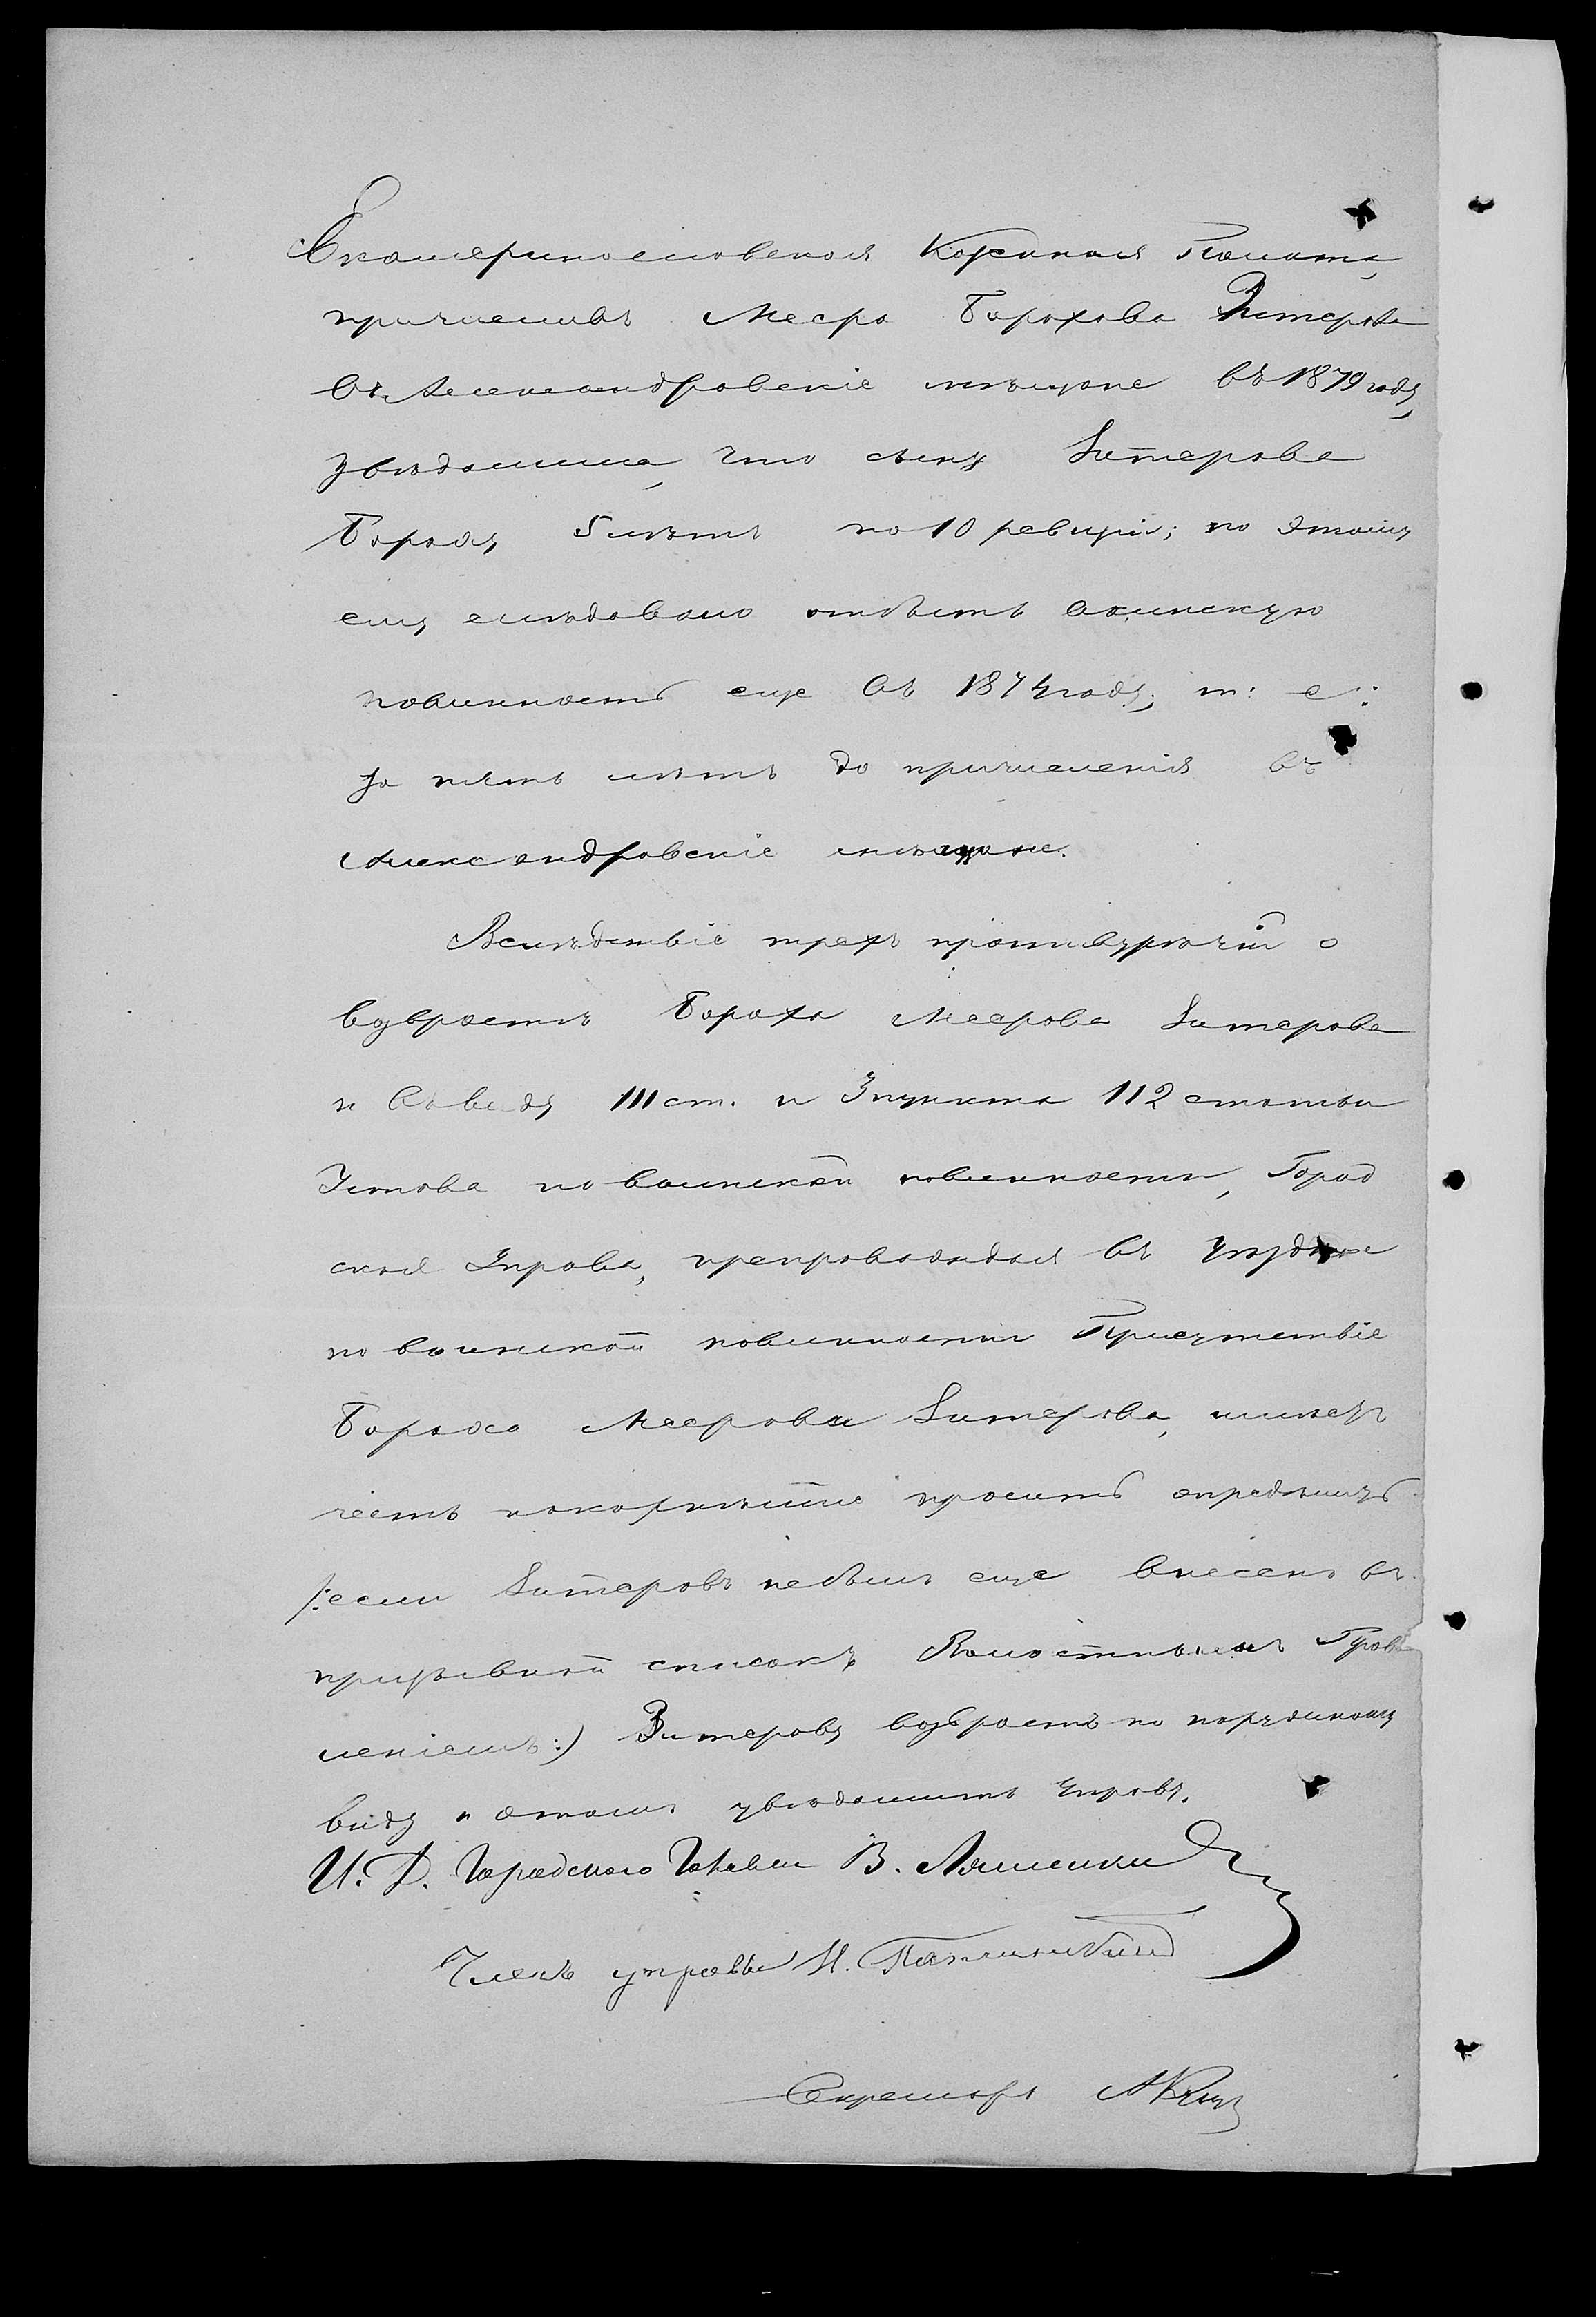 Екатеринославская Казенная Палата,
причисливъ Меера Борохова Зитерова
въ Александровскіе мѣщане въ 1879 году,
увѣдомила, что сыну Зитерова
Бороху 5 лѣтъ по 10 ревизіи; по этому
ему слѣдовало отбыть воинскую
повинность еще въ 1874 году, т: е:
за пять лѣтъ до причисленія въ
Александровскіе мѣщане.
Вслѣдствіе трехъ противурѣчій о
возрастѣ Бороха Меерова Зитерова
и въ виду 111 ст. и 3 пункта 112 статьи
Устава по воинской повинности, Город
ская Управа, препровождая въ Уѣздное
по воинской повинности Присутствіе
Бороха Меерова Зитерова, имѣетъ
честь покорнѣйше просить опредѣлить
/:если Зитеровъ не былъ еще внесенъ въ
призывной списокъ Волостнымъ Прав
леніемъ:) Зитерову возрастъ по наружному
виду и о томъ увѣдомить Управу.
И. Д. Городского Головы В. Ляшенко
Членъ управы И.
Секретарь